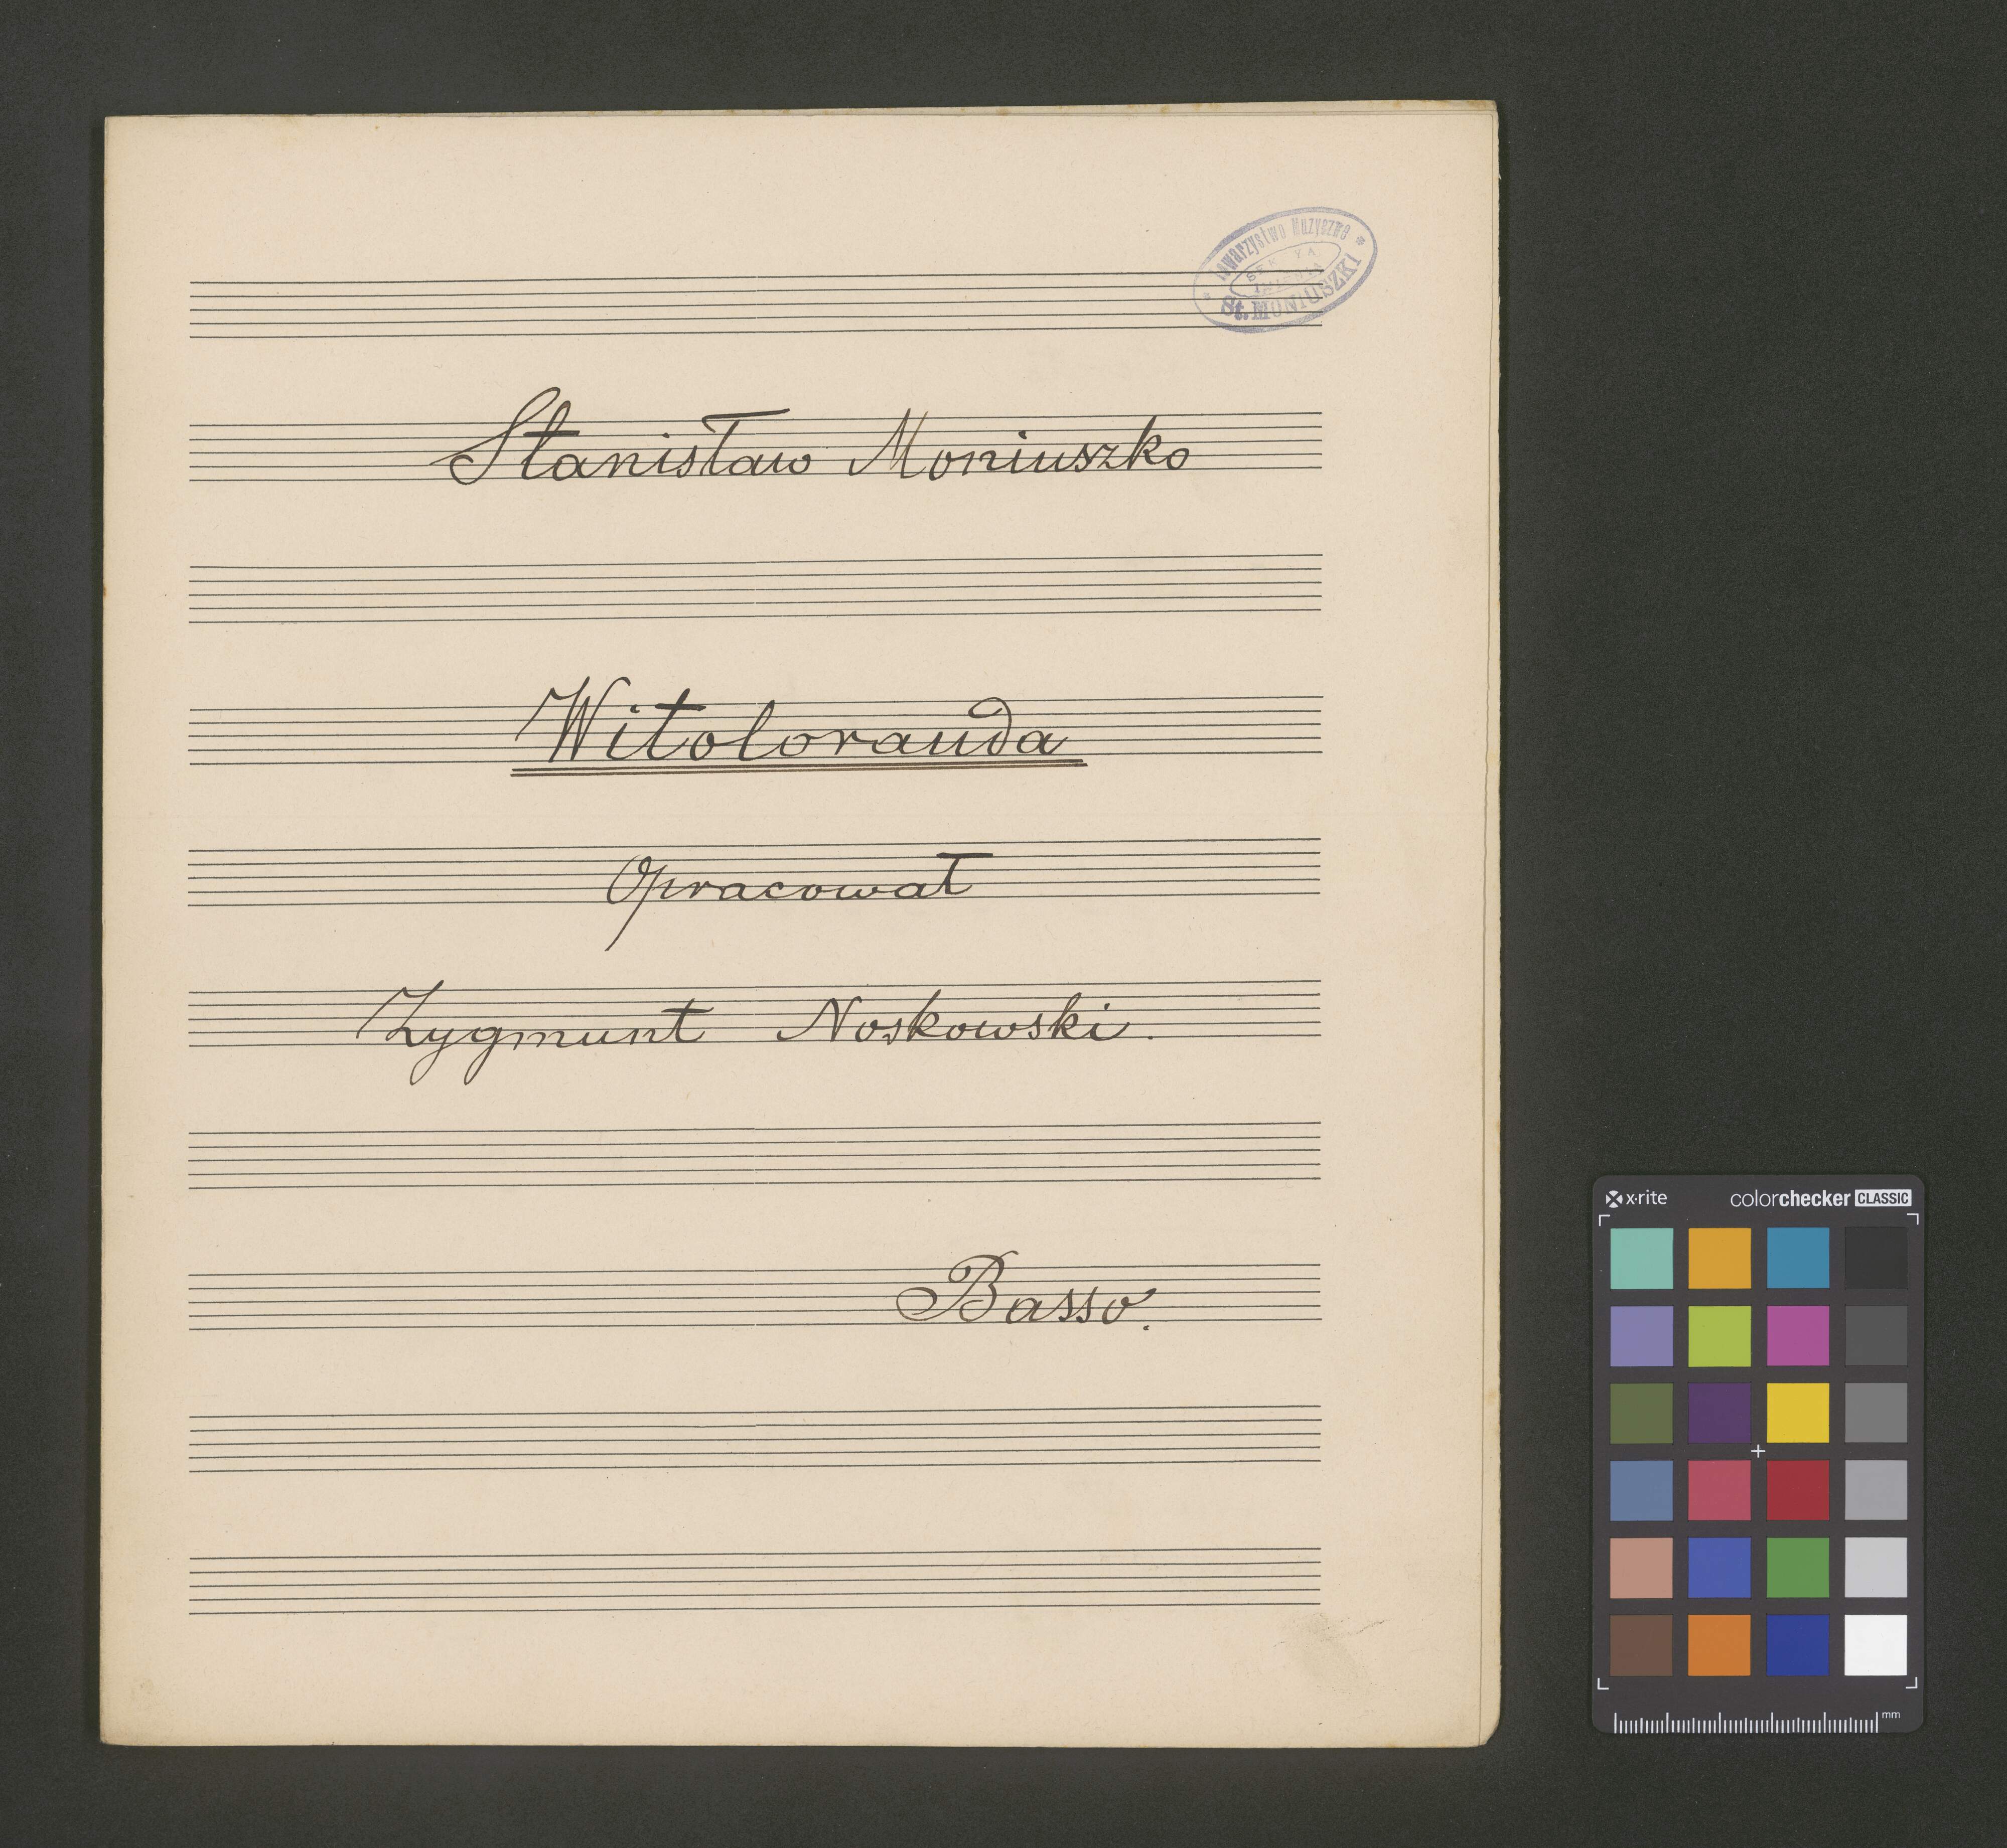 Towarzystwo Muzyczne
SEKCYA
IMIENIA
St. MONIUSZKI
Stanisław Moniuszko
Witolorauda
Opracował
Zygmunt Noskowski.
Basso.
x·rite colorchecker CLASSIC
mm